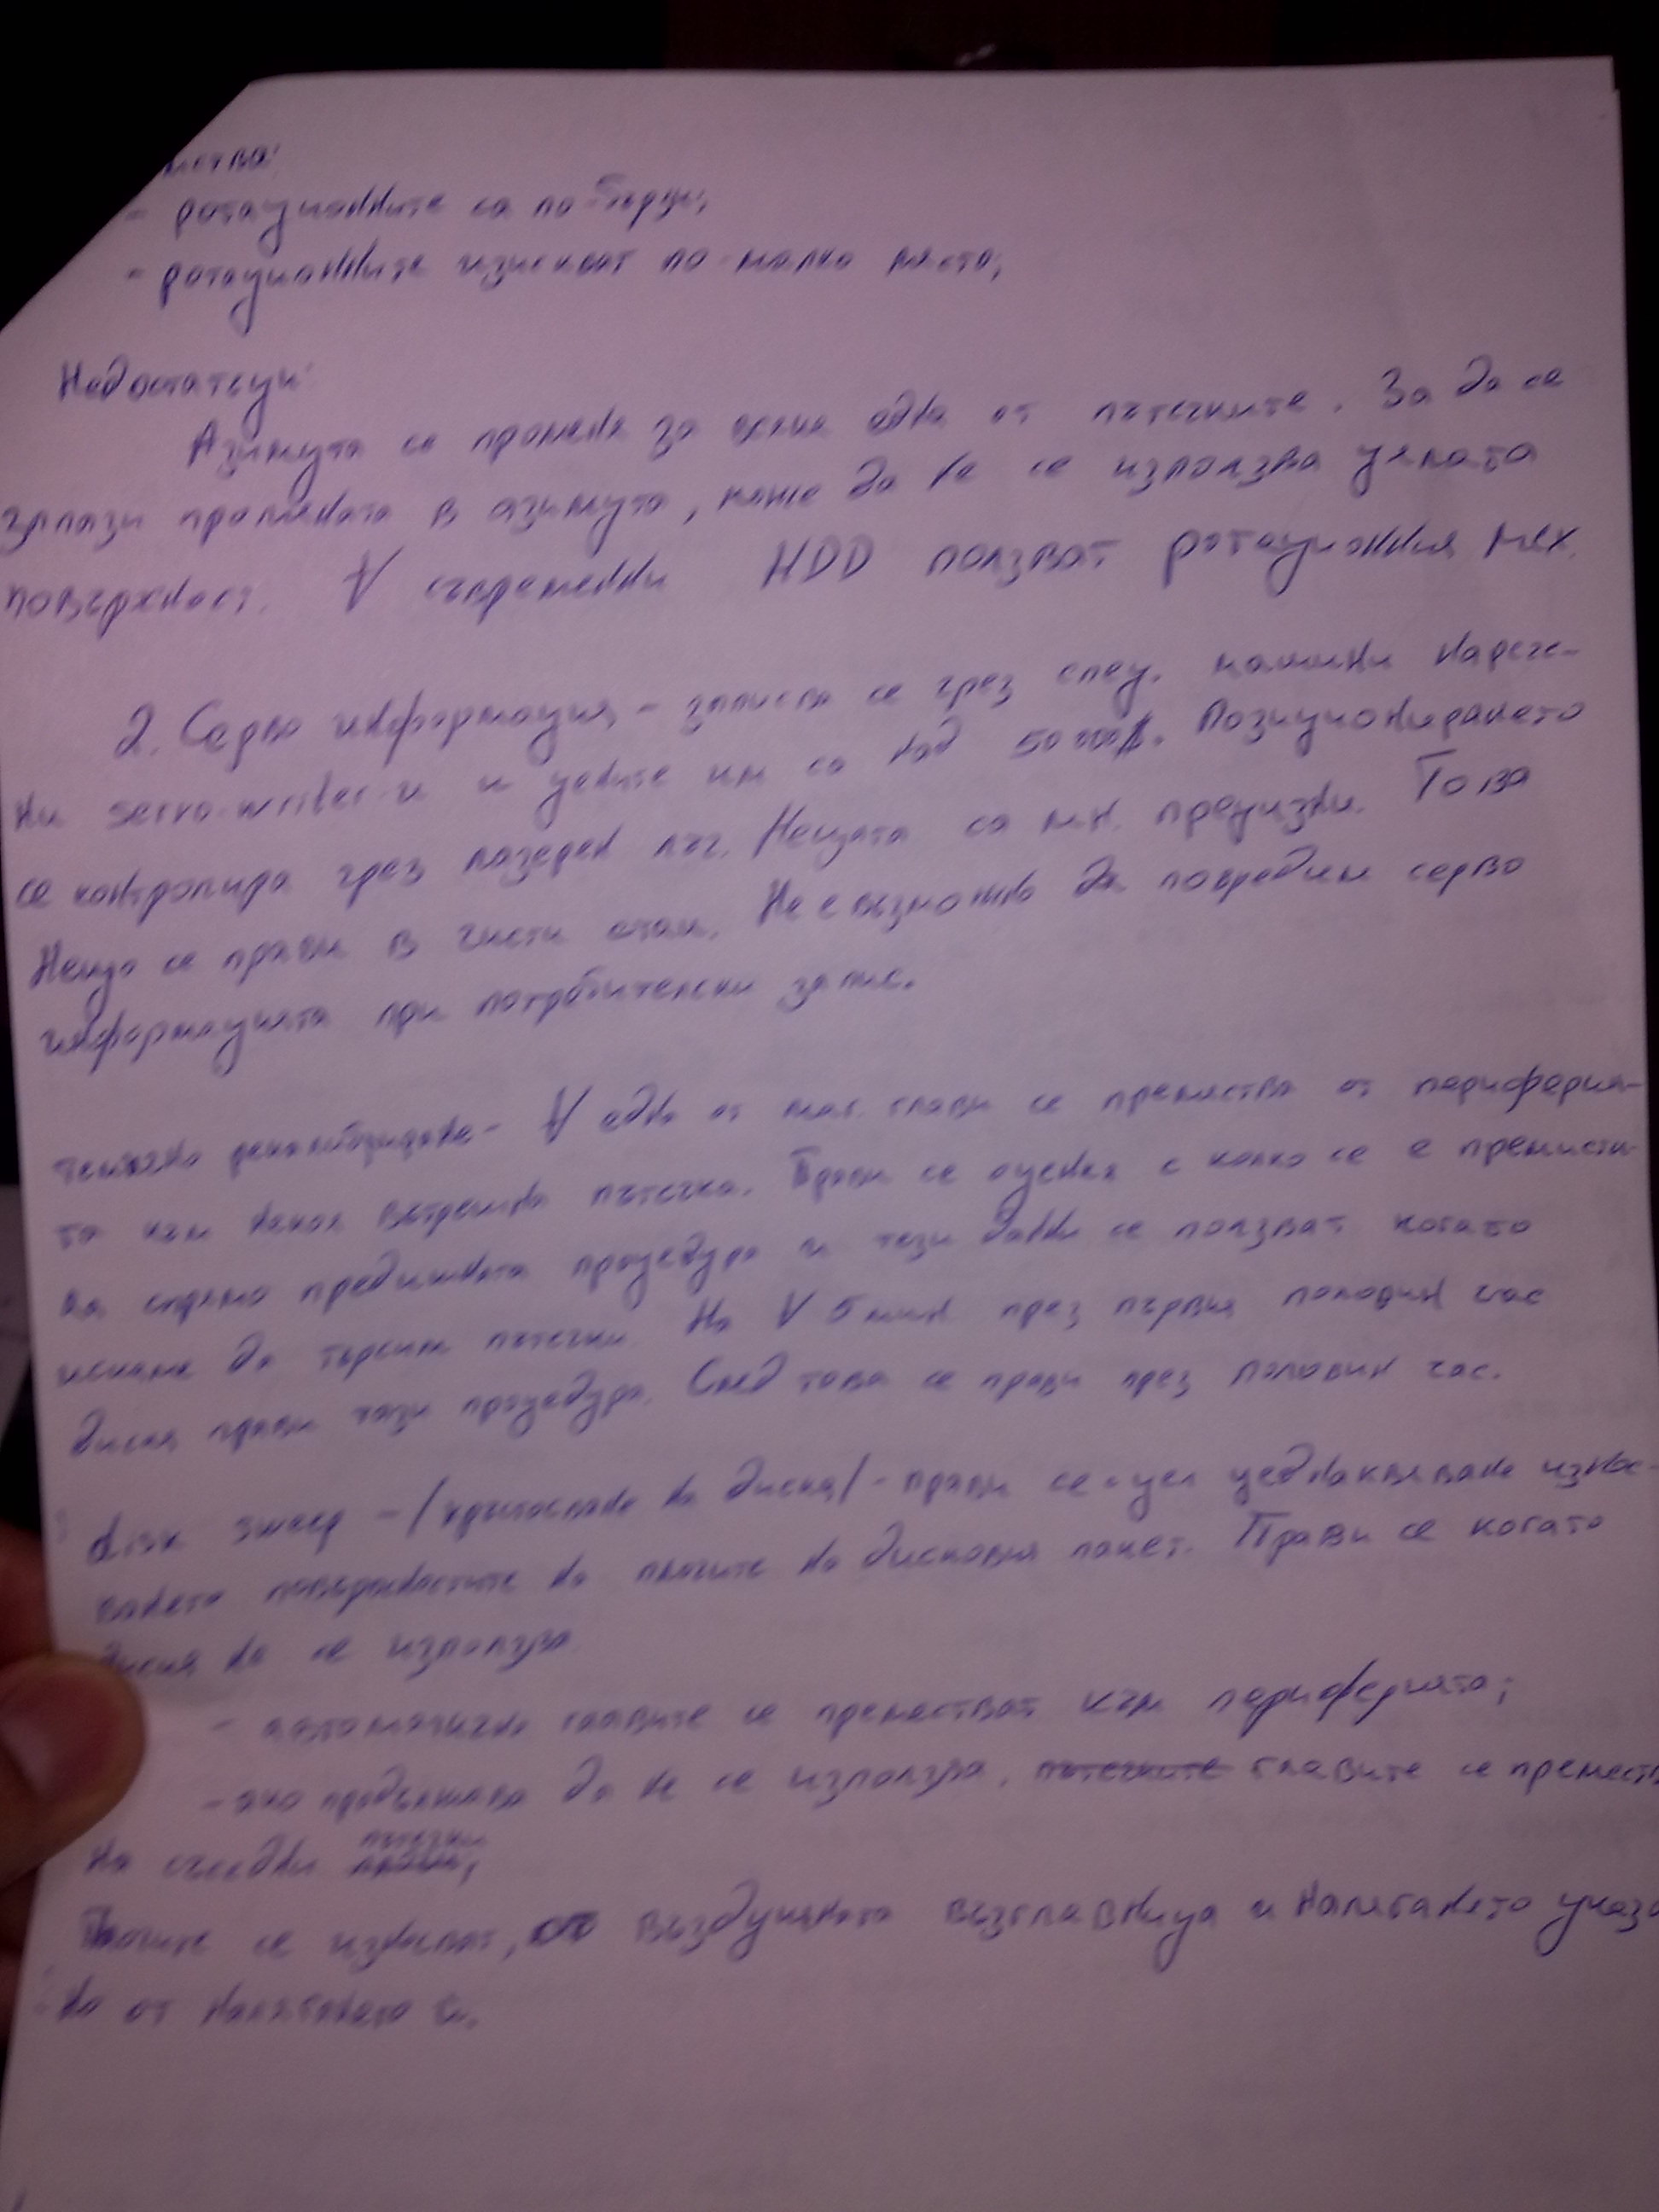 мства:
- ротационните са по-бързи;
- ротационните изискват по-малко място;
Недостатъци:
Азимута се променя за всяка една от пътечките. За да се
запази промяната в азимута, може да не се използва цялата
повърхност. ∀ съвременни HDD ползват ротационния мех.
2. Серво информация - записва се чрез спец. машини нарече-
ни servo-writer-и и цените им са над 50 000$. Позиционирането
се контролира чрез лазерен лъч. Нещата са мн. прецизни. Това
нещо се прави в чисти стаи. Не е възможно да повредим серво
информацията при потребителски запис.
- ∀ една от маг. глави се премества от периферия-
та към някоя вътрешна пътечка. Прави се оценка с колко се е премести-
ла спрямо предишната процедура и тези данни се ползват когато
искаме да търсим пътечки. На ∀ 5 мин през първия половин час
диска прави тази процедура. След това се прави през половин час.
disk sweep - / на диска/ - прави се с цел уеднаквяване износ-
ването повърхностите на плочите на дисковия пакет. Прави се когато
диския не се използва
- автоматично главите се преместват към периферията;
- ако продължава да не се използва, пътечките главите се преместв
на съседни пътечки
Плочите се износват, от въздушната възглавница и налягането указа
но от налягането ѝ.